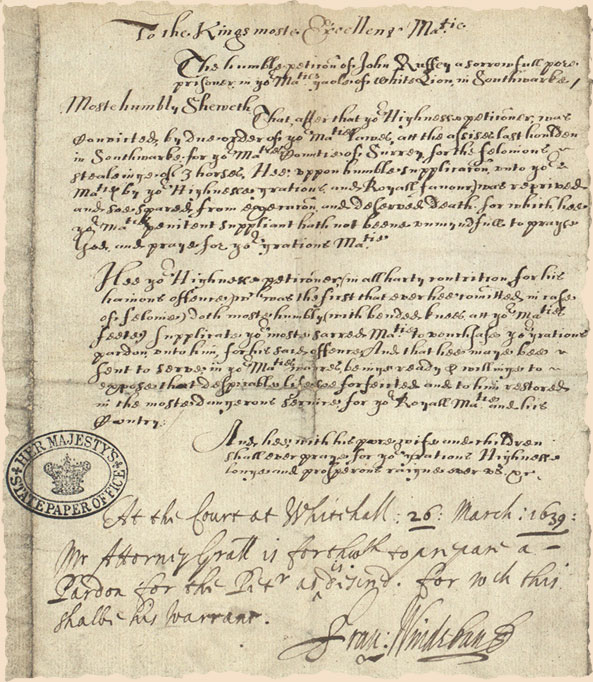 To the Kings moste Excellent Ma:tie
The humble peticōn of John Ruffey a sorrowfull pore
prisoner in yor Maties gaole of white Lion, in Southwarke /
Moste humbly Sheweth
That, after that yor Highnesse peticōner, was
Convicted, by due order of yor Maties lawes, att the assises last houlden
in Southwarke, for yor Maties Countie of Surrey, for the felonious
stealeinge of 3 horses, Hee uppon humble supplicacōn unto yor
Matie & by yor Highnesse gratious and Royall favour) was reprived
and soe spared from execucōn, and deserved Death: for which hee
yor Maties penitent suppliant hath not beene unmindfull to prayse
God, and praye for yor gratious Matie
Hee yor Highnesse peticōner, in all harty contrition for his
hainous offence, was the first that ever hee comitted, in case
of felonie) doth most humbly (with bended knees, att yor Maties
feete) Supplicate yor most sacred Matie to vouchsafe yor gratious
pardon unto him, for his said offence, And that hee maye bee
sent to serve in yor Maties warres, beinge ready & willinge to
oppose that despicable life, soe forfeited and to him restored
in the most dangerous service, for yor Royall Matie and his
Country:
And, hee, with his pore wife and children
shall ever praye for yor gratious Highnesse
longe and prosperous raigne over us, &c.
HER MAJESTY'S
STATE PAPER OFFICE
At the Court at Whitehall : 26 : March : 1639 :
Mr Attorney Grall is forthwth to prepare a
Pardon for the Petr as is desired. for wch this
shalbe his warrant.
Fran: Windebank